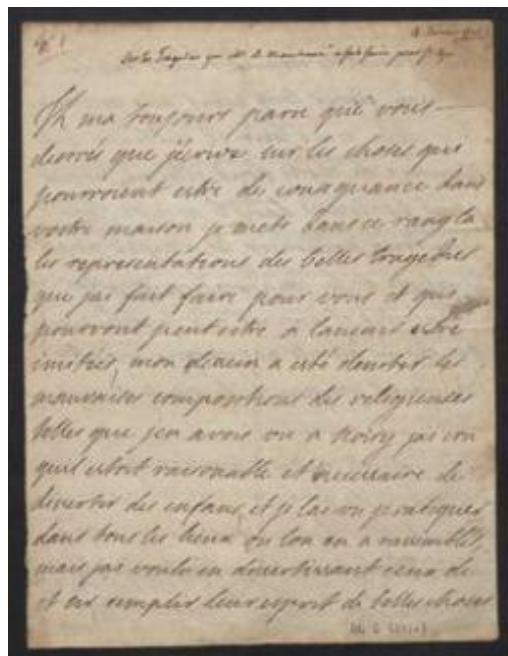 Sur les Tragedies que Mme de Maintenon a fait faire pour St Cyr
Il ma toujours paru que vous
desirés que jecrive sur les choses qui
pourroient estre de consequance dans
vostre maison je mets dans ce rang la
les representations des belles tragedies
que jai fait faire pour vous et qui
pourront peut estre a lavenir estre
imitées, mon dessein a esté desviter les
mauvaises compositions des religieuses
telles que jen avois vu a Noisy jai cru
quil estoit raisonnable et necessaire de
divertir des enfans et je lai vu pratiquer
dans tous les lieux ou lon en a rassemblés,
mais jai voulu en divertissant ceux de
st cir remplir leur esprit de belles choses